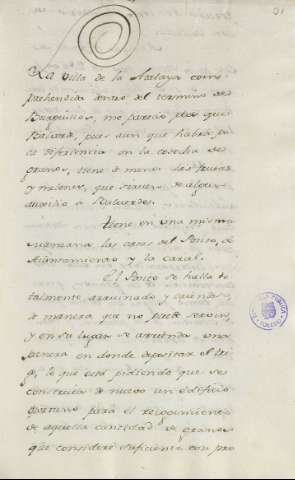 La Villa de la Atalaya com
prehendida dentro del termino de
Burguillos, me pareció peor que
Balacà, pues aun que habrà po
ca diferencia en la cosecha de
granos, tiene de menos las frutas
y melones, que sirven de algun
auxilio a
tiene en una misma
las casas del Posito, de
Aiuntamiento y la carcel.
El Posito se halla to
talmente arruinado y caiendose
de manera que no puede servir,
y en su lugar se arrienda una
panera en donde depositar el tri
go, lo que està pidiendo que se
construia de nuevo un edificio
oportuno para el recogimiento
de aquella cantidad de granos
que considere suficiente con pro